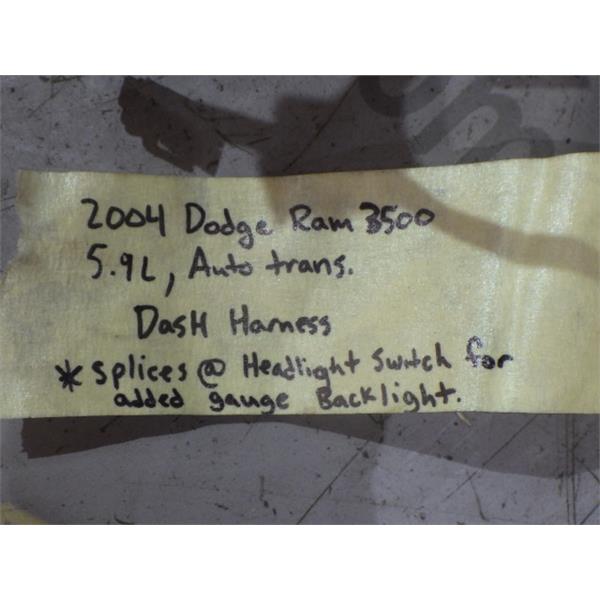 2004 Dodge Ram 3500
5.9L, Auto trans.
DasH Harness
* splices @ Headlight Switch for
added gauge Backlight.